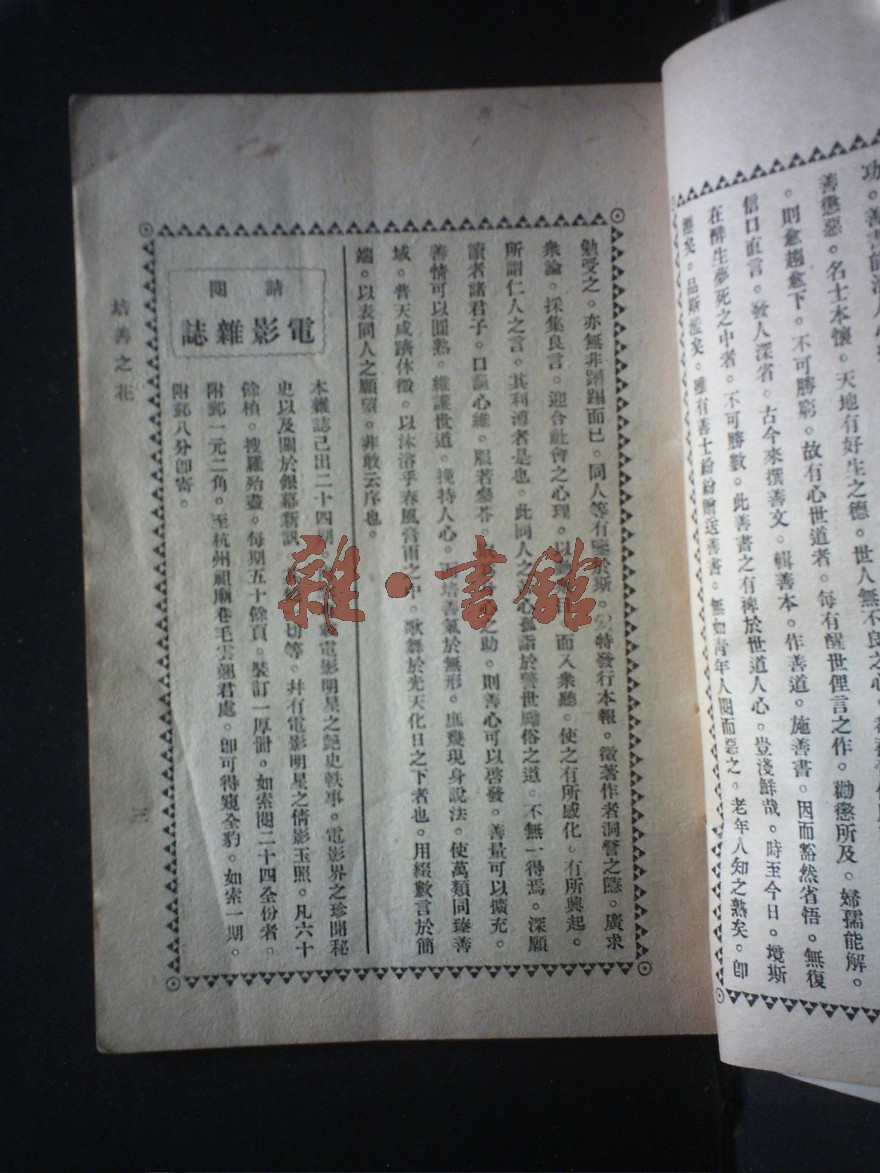 善懲惡。名士本懷。天地有好生之德。世人無不良之心。
。則愈趨愈下。不可勝窮。故有心世道者。每有醒世俚言之作。勸懲所及。婦孺能解。
信口直言。發人深省。古今來撰善文。輯善本。作善道。施善書。因而豁然省悟。無復
在醉生夢死之中者。不可勝數。此善書之有裨於世道人心。豈淺鮮哉。時至今日。壞斯
矣。品斯濫矣。雖有善士紛紛贈送善書。無如青年人閱而惡之。老年人知之熟矣。卽
勉受之。亦無非蹧蹋而已。同人等有鑒於斯。特發行本報。徵著作者洞詧之隱。廣求
衆論。採集良言。迎合社會之心理。以而入衆聽。使之有所感化。有所興起。
所謂仁人之言。其利溥者是也。此同人之心孤詣於警世勵俗之道。不無一得焉。深願
讀者諸君子。口誦心維。服若參苓。之助。則善心可以啓發。善量可以擴充。
善情可以圓熟。維護世道。挽持人心。培善氣於無形。庶幾現身說法。使萬類同臻善
域。普天咸躋休徵。以沐浴乎春風膏雨之中。歌舞於光天化日之下者也。用綴數言於簡
端。以表同人之願望。非敢云序也。
請閱
電影雜誌
本雜誌已出二十四期。電影明星之艷史軼事。電影界之珍聞秘
史以及關於銀幕新訊。一切等。幷有電影明星之倩影玉照。凡六十
餘楨。搜羅殆盡。每期五十餘頁。裝訂一厚冊。如索閱二十四全份者。
附郵一元二角。至杭州祖廟巷毛雲翹君處。卽可得窺全豹。如索一期。
附郵八分卽寄。
培善之花
三
雜·書館